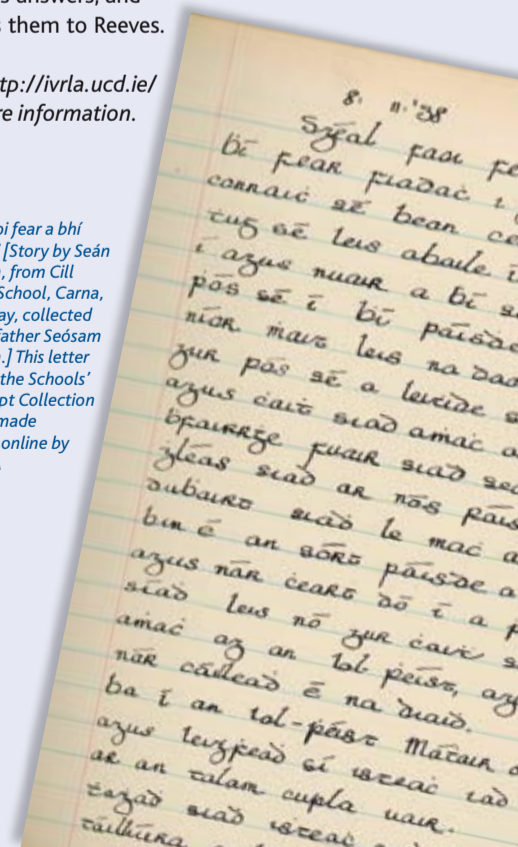 s answers, and
s them to Reeves.
tp://ivrla.ucd.ie/
re information.
oi fear a bhí
[Story by Seán
, from Cill
School, Carna,
ay, collected
father Seósam
.] This letter
the Schools'
pt Collection
made
online by
8. 11. '38
Sgéal faoi fe
bí fear fiadaċ i
connaic sé bean ce
tug sé leis abaile í
í agus nuair a bí s
pós sé í bí páisde
níor maiṫ leis na dao
gur pós sé a leiṫide s
agus ċaiṫ siad amaċ a
bfairrge fuair siad sea
gléas siad ar nós páis
dubairt siad le mac a
bin é an sórt páisde a
agus nár ċeart dó í a p
siad leis nó gur ċaiṫ s
amaċ ag an lol péist, ag
nár cailleaḋ é na ḋiaiḋ.
ba í an lol-péist Máṫair
agus leigfeaḋ sí isteaċ iad
ar an talam cupla uair.
tagaḋ siad isteaċ